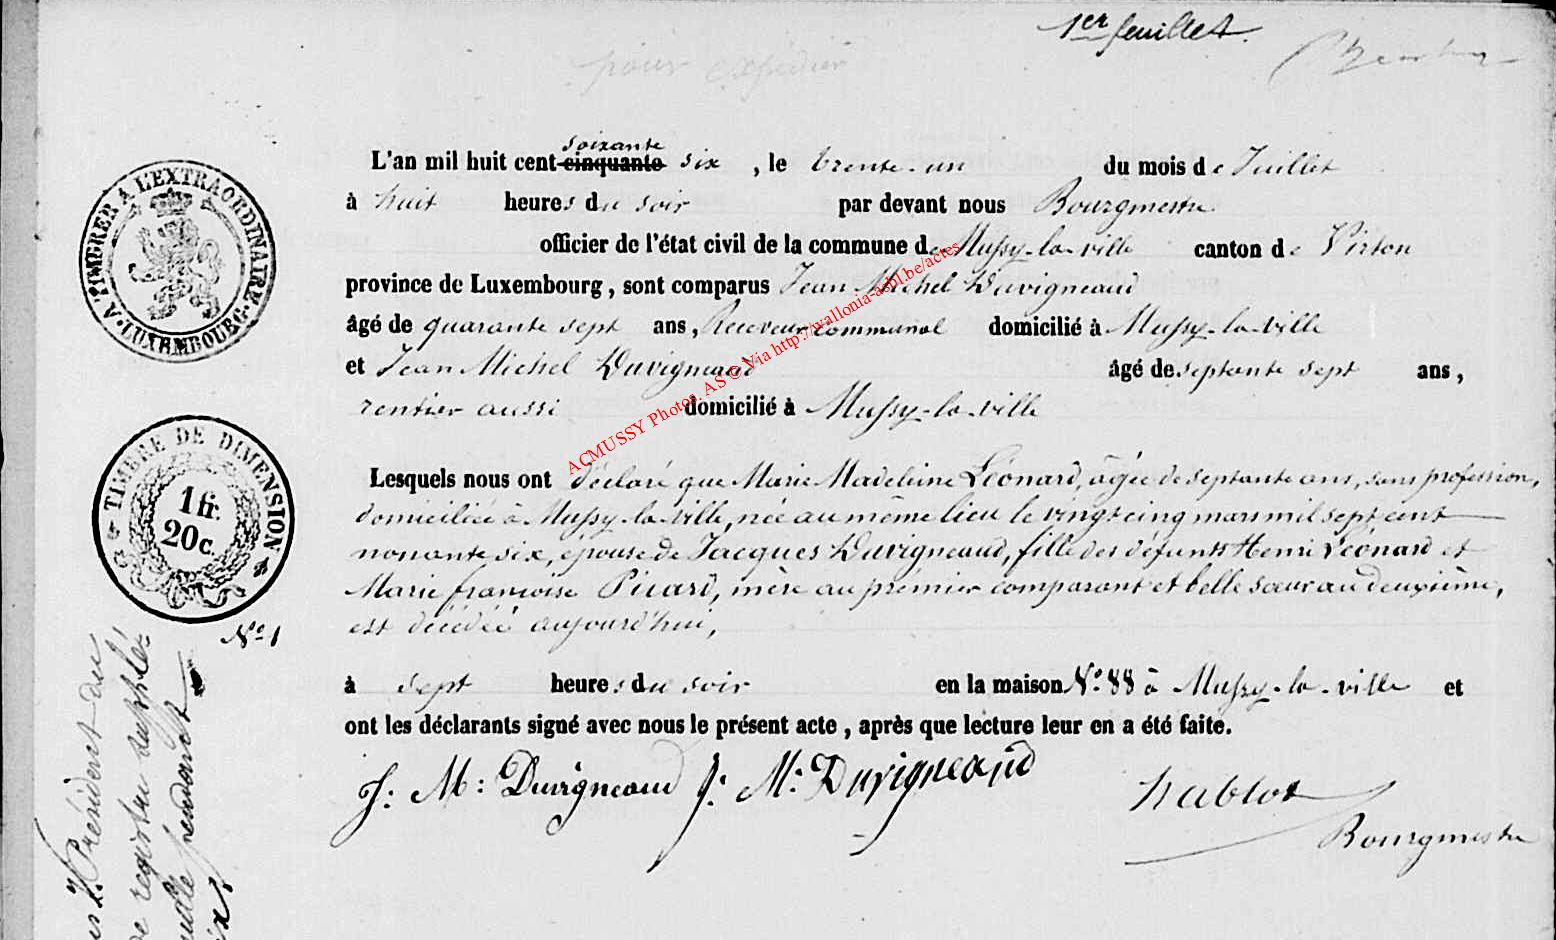 1er feuillet.
pour expédier
A TIMBRER A L'EXTRAORDINAIRE
LUXEMBOURG
L'an mil huit cent cinquante soixante six, le trente-un du mois de Juillet
à huit heures du soir par devant nous Bourgmestre
officier de l'état civil de la commune de Mussy-la-ville canton de Virton
province de Luxembourg, sont comparus Jean Michel Duvigneaud
âgé de quarante sept ans, Receveur communal domicilié à Mussy-la-ville
et Jean Michel Duvigneaud âgé de septante sept ans,
rentier aussi domicilié à Mussy-la-ville
ACMUSSY Photos. AS © Via http://wallonia-asbl.be/actes
TIMBRE DE DIMENSION
1 fr.
20 c.
Lesquels nous ont déclaré que Marie Madeleine Léonard, âgée de septante ans, sans profession,
domiciliée à Mussy-la-ville, née au même lieu le vingt cinq mars mil sept cent
nonante six, épouse de Jacques Duvigneaud, fille des défunts Henri Léonard et
Marie françoise Picard, mère au premier comparant et belle sœur au deuxième,
est décédée aujourd'hui,
No 1
à sept heures du soir en la maison No 88 à Mussy-la-ville et
ont les déclarants signé avec nous le présent acte, après que lecture leur en a été faite.
J: M: Duvigneaud J: M: Duvigneaud
hablot
Bourgmestre
Président du
registre supplé-
pendant